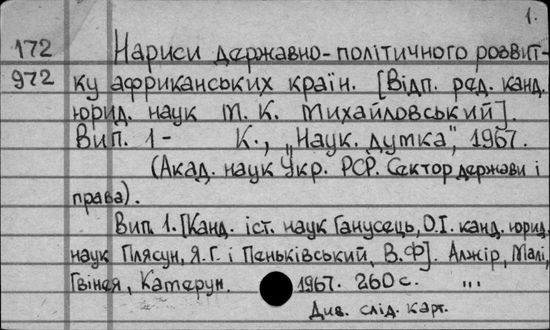 1.
172 Нариси державно-політичного розвит-
972 ку африканських країн. [Відп. ред. канд.
юрид. наук М. К. Михайловський].
Вип. 1- К., „Наук. думка", 1967.
(Акад. наук Укр. РСР. Сектор держави і
права).
Вип. 1. [Канд. іст. наук Ганусець, О.І. канд. юрид.
наук Плясун, Я.Г. і Пеньківський, В.Ф]. Алжір, Малі,
Гвінея, Камерун. 1967. 260 с. "..
Див. слід. карт.